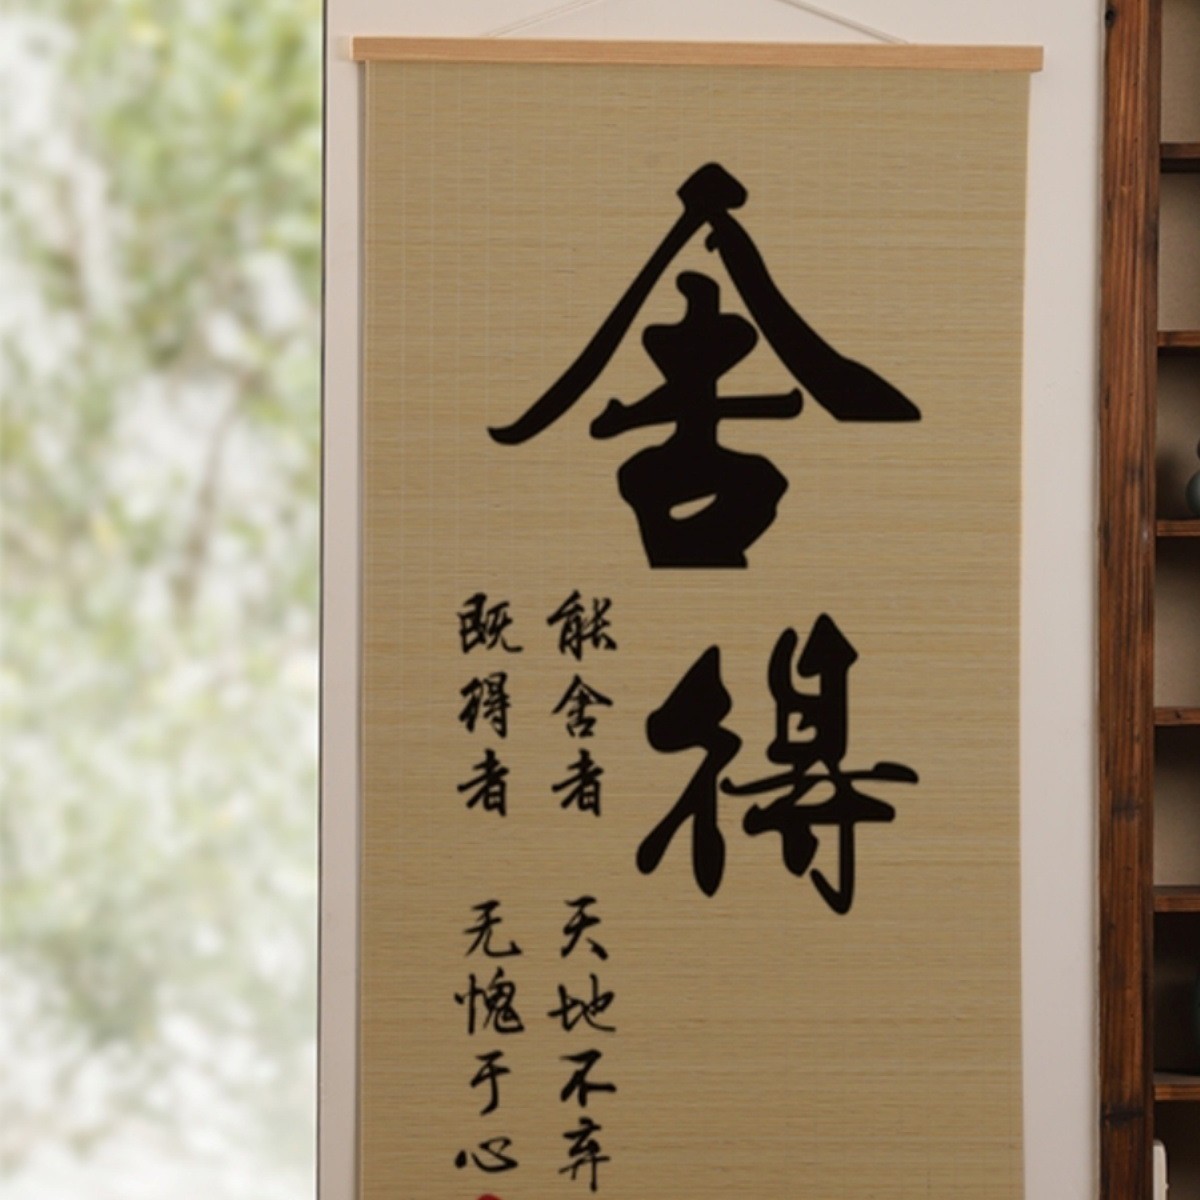 舍得
能舍者 天地不弃
既得者 无愧于心